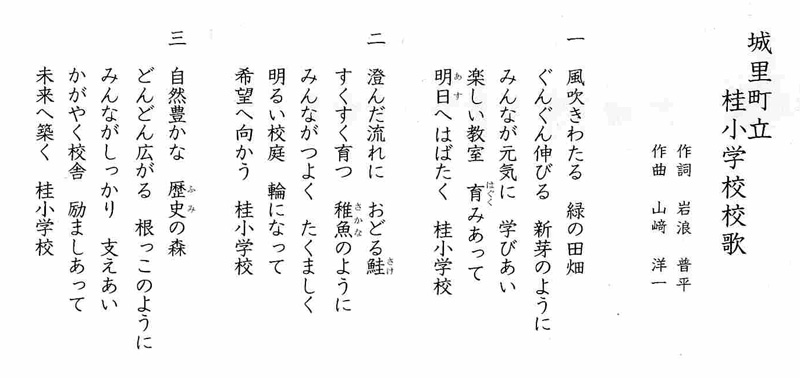 城里町立
桂小学校校歌
作詞 岩浪 普平
作曲 山﨑 洋一
一 風吹きわたる 緑の田畑
ぐんぐん伸びる 新芽のように
みんなが元気に 学びあい
楽しい教室 育みあって
はぐく
明日へはばたく 桂小学校
あす
二 澄んだ流れに おどる鮭
さけ
すくすく育つ 稚魚のように
さかな
みんながつよく たくましく
明るい校庭 輪になって
希望へ向かう 桂小学校
三 自然豊かな 歴史の森
ふみ
どんどん広がる 根っこのように
みんながしっかり 支えあい
かがやく校舎 励ましあって
未来へ築く 桂小学校